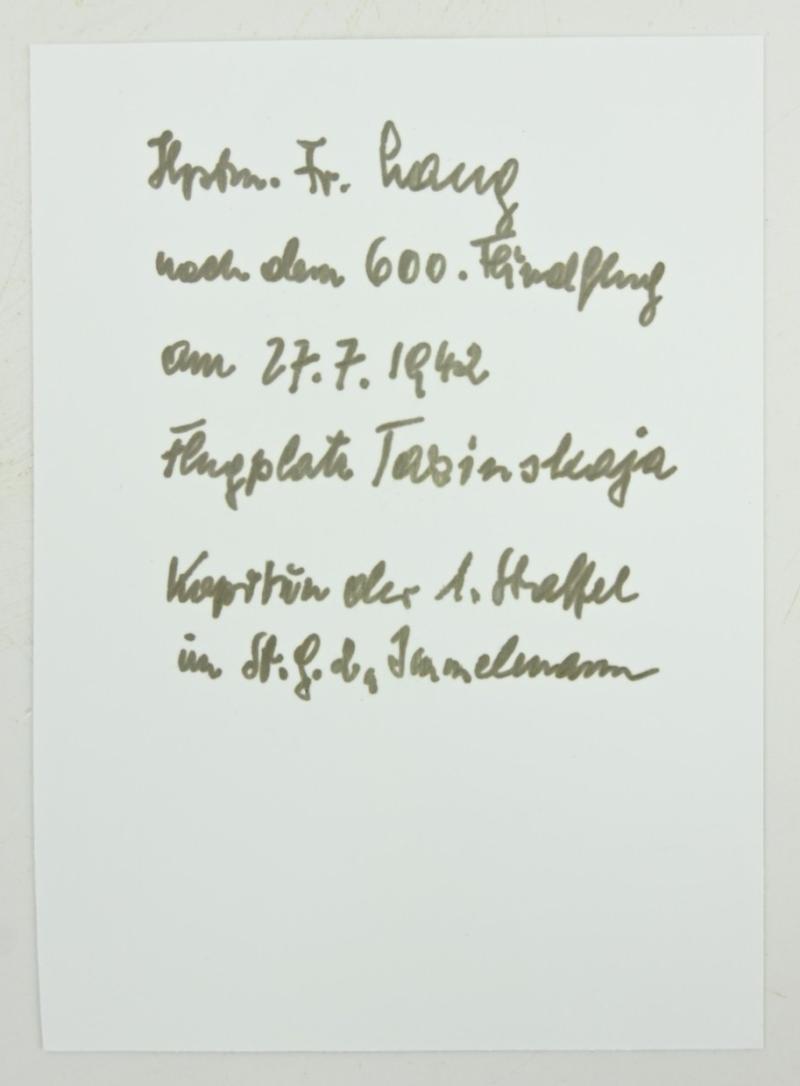 Hptm. Fr. Lang
nach dem 600. Feindflug
am 27.7.1942
Flugplatz Tazinskaja
Kapitän der 1. Staffel
im St.G.2, Immelmann